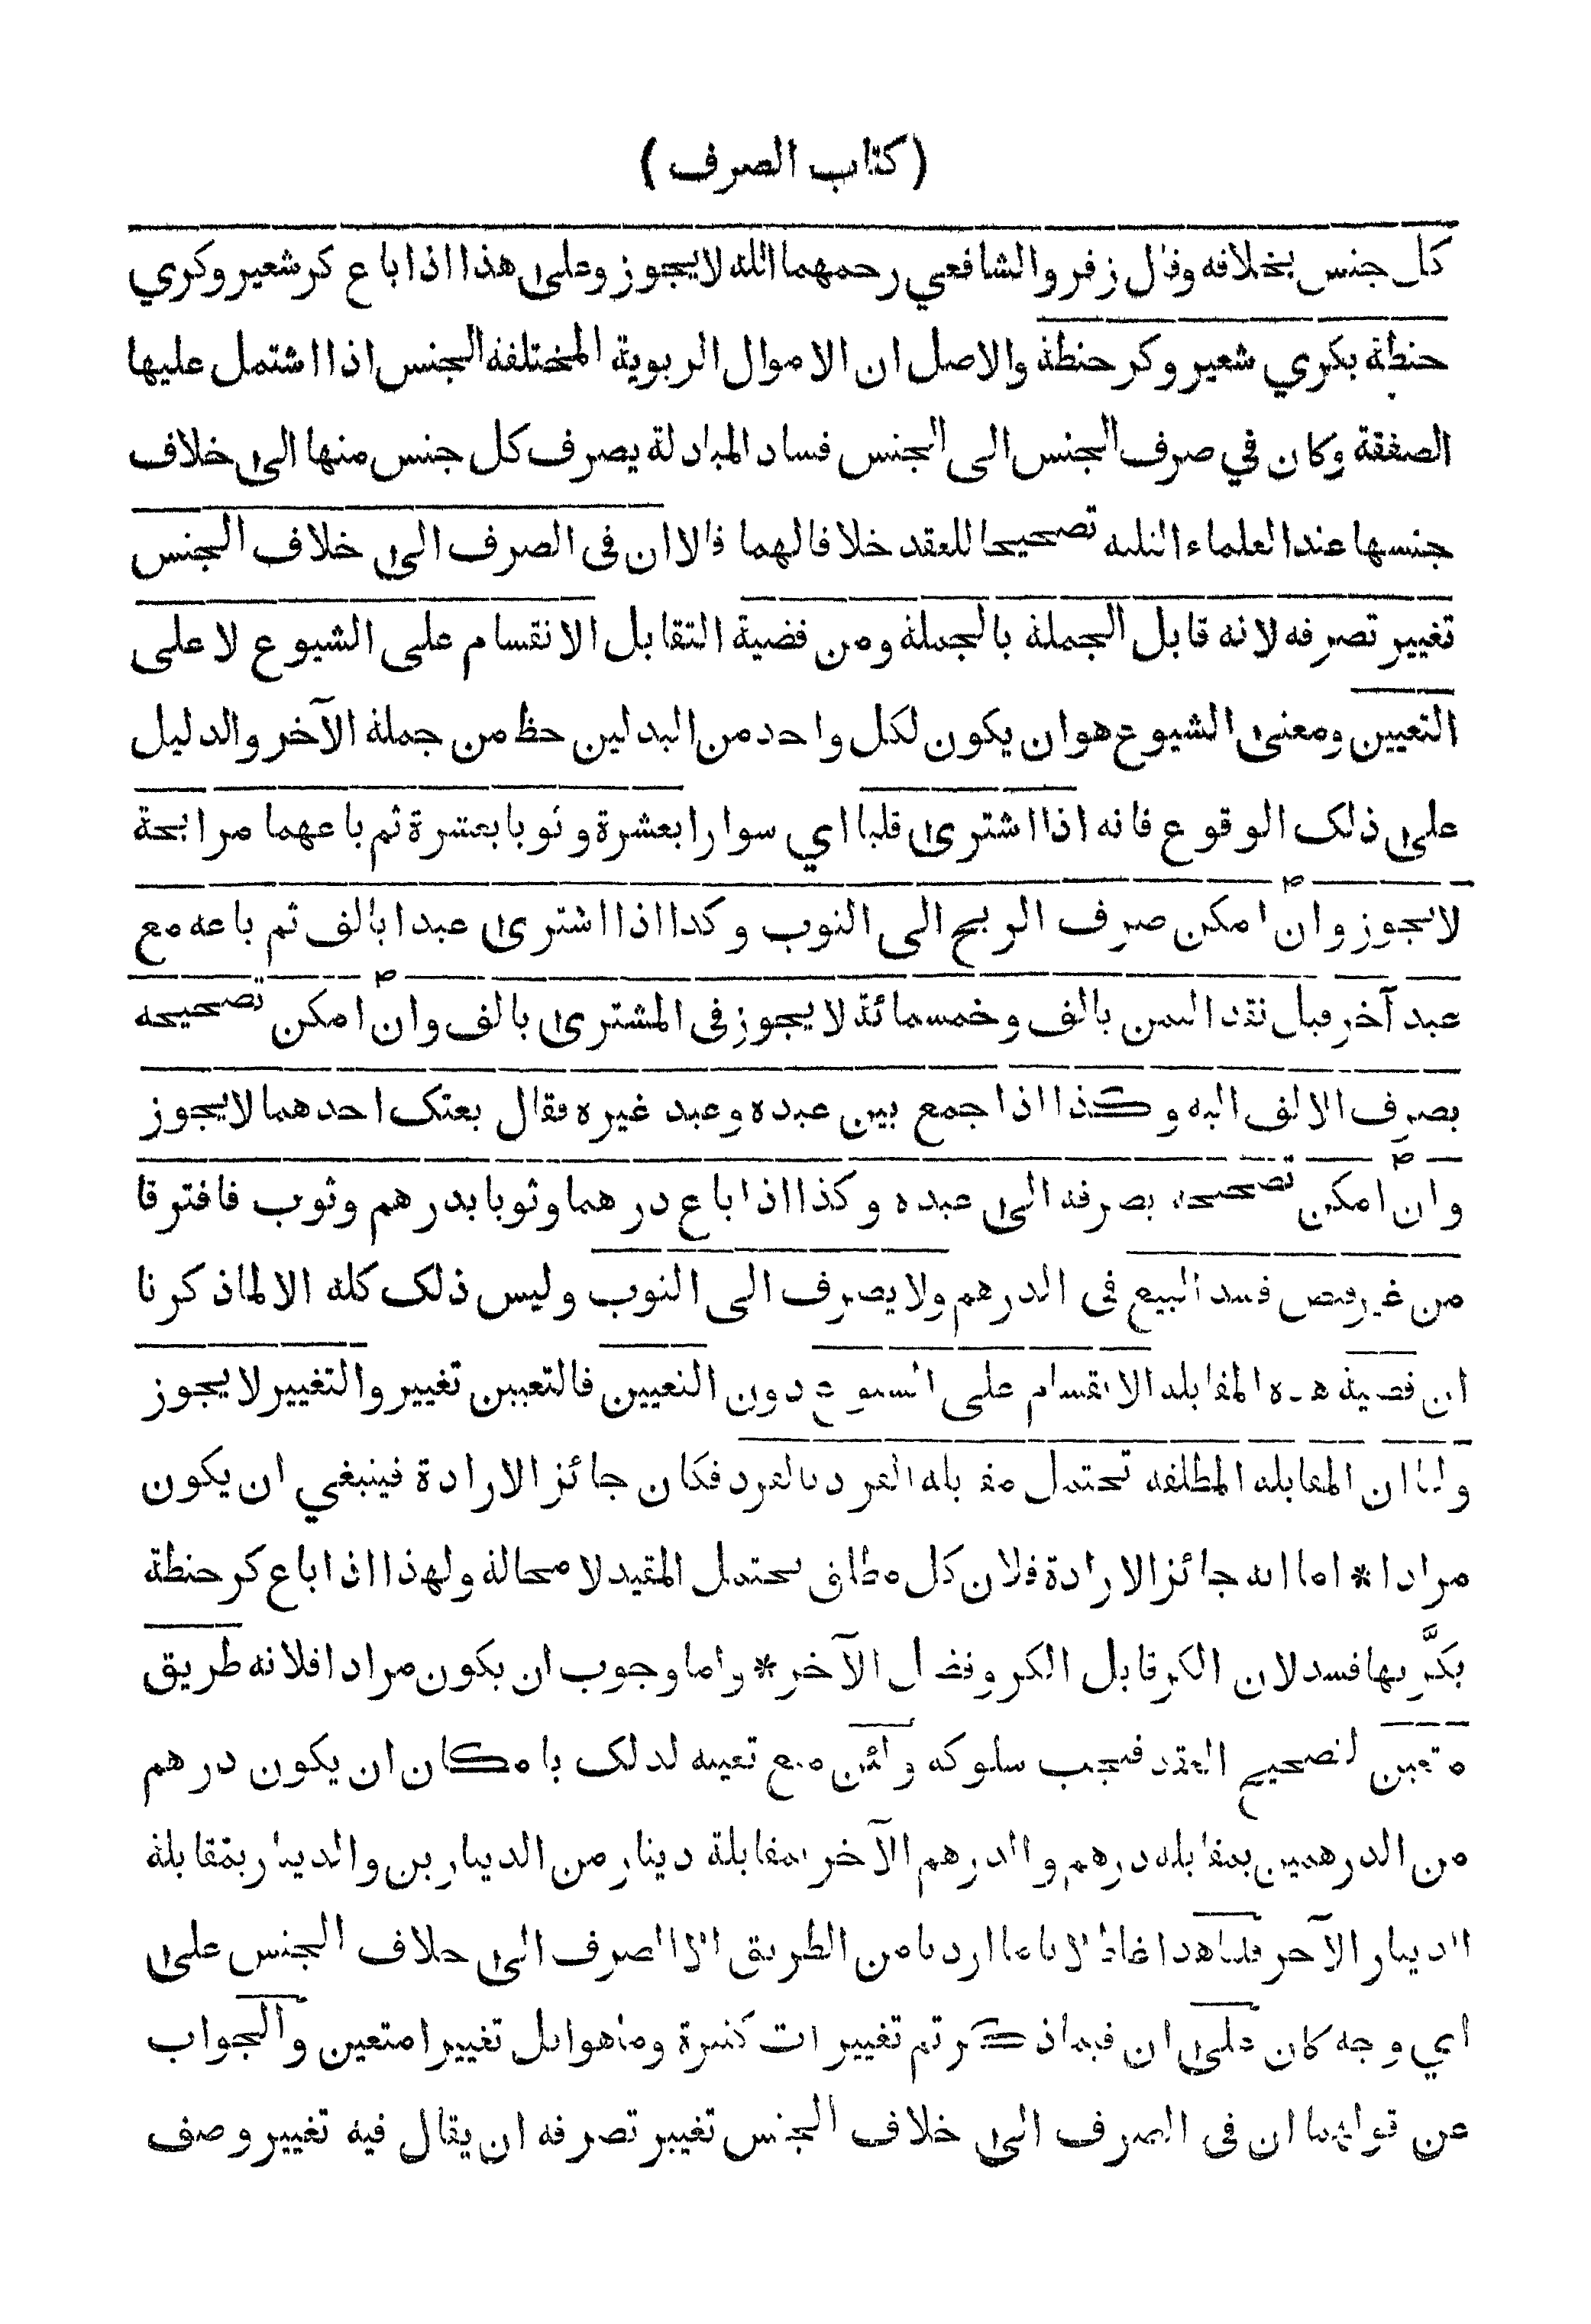 (كتاب الصرف)
كل جنس بخلافه وقال زفر والشافعي رحمهما الله لا يجوز وعلى هذا اذا باع كر شعير وكري
حنطة بكري شعير وكر حنطة والاصل ان الاموال الربوية المختلفة الجنس اذا اشتمل عليها
الصفقة وكان في صرف الجنس الى الجنس فساد المبادلة يصرف كل جنس منها الى خلاف
جنسها عند العلماء الثلثة تصحيحا للعقد خلافا لهما قالا ان في الصرف الى خلاف الجنس
تغيير تصرفه لانه قابل الجملة بالجملة ومن قضية التقابل الانقسام على الشيوع لا على
التعيين ومعنى الشيوع هو ان يكون لكل واحد من البدلين حظ من جملة الآخر والدليل
على ذلك الوقوع فانه اذا اشترى قلبا اي سوارا بعشرة وثوبا بعشرة ثم باعهما مرابحة
لا يجوز وان امكن صرف الربح الى الثوب وكذا اذا اشترى عبدا بالف ثم باعه مع
عبد آخر قبل نقد الثمن بالف وخمسمائة لا يجوز في المشترى بالف وان امكن تصحيحه
بصرف الالف اليه وكذا اذا جمع بين عبده وعبد غيره فقال بعتك احدهما لا يجوز
وان امكن تصحيحه بصرفه الى عبده وكذا اذا باع درهما وثوبا بدرهم وثوب فافترقا
من غير قبض فسد البيع في الدرهم ولا يصرف الى الثوب وليس ذلك كله الا لما ذكرنا
ان قضية هذه المقابلة الانقسام على الشيوع دون التعيين فالتعيين تغيير والتغيير لا يجوز
ولنا ان المقابلة المطلقة تحتمل مقابلة الفرد بالفرد فكان جائز الارادة فينبغي ان يكون
مرادا * اما انه جائز الارادة فلان كل مطلق يحتمل المقيد لا محالة ولهذا اذا باع كر حنطة
بكرّيها فسد لان الكر قابل الكر وفضل الآخر * واما وجوب ان يكون مرادا فلانه طريق
متعين لتصحيح العقد فيجب سلوكه ولئن منع تعينه لذلك بامكان ان يكون درهم
من الدرهمين بمقابلة درهم والدرهم الآخر بمقابلة دينار من الدينارين والدينار بمقابلة
الدينار الآخر قلنا هذا غلط لانا ما اردنا من الطريق الا الصرف الى خلاف الجنس على
اي وجه كان على ان فيما ذكرتم تغييرات كثيرة وما هو اقل تغييرا متعين والجواب
عن قولهما ان في الصرف الى خلاف الجنس تغيير تصرفه ان يقال فيه تغيير وصف